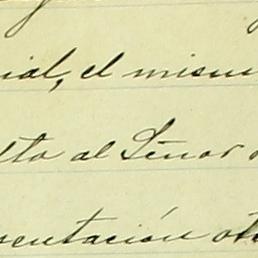 ial, el mism
lta al Señor
sentación ot